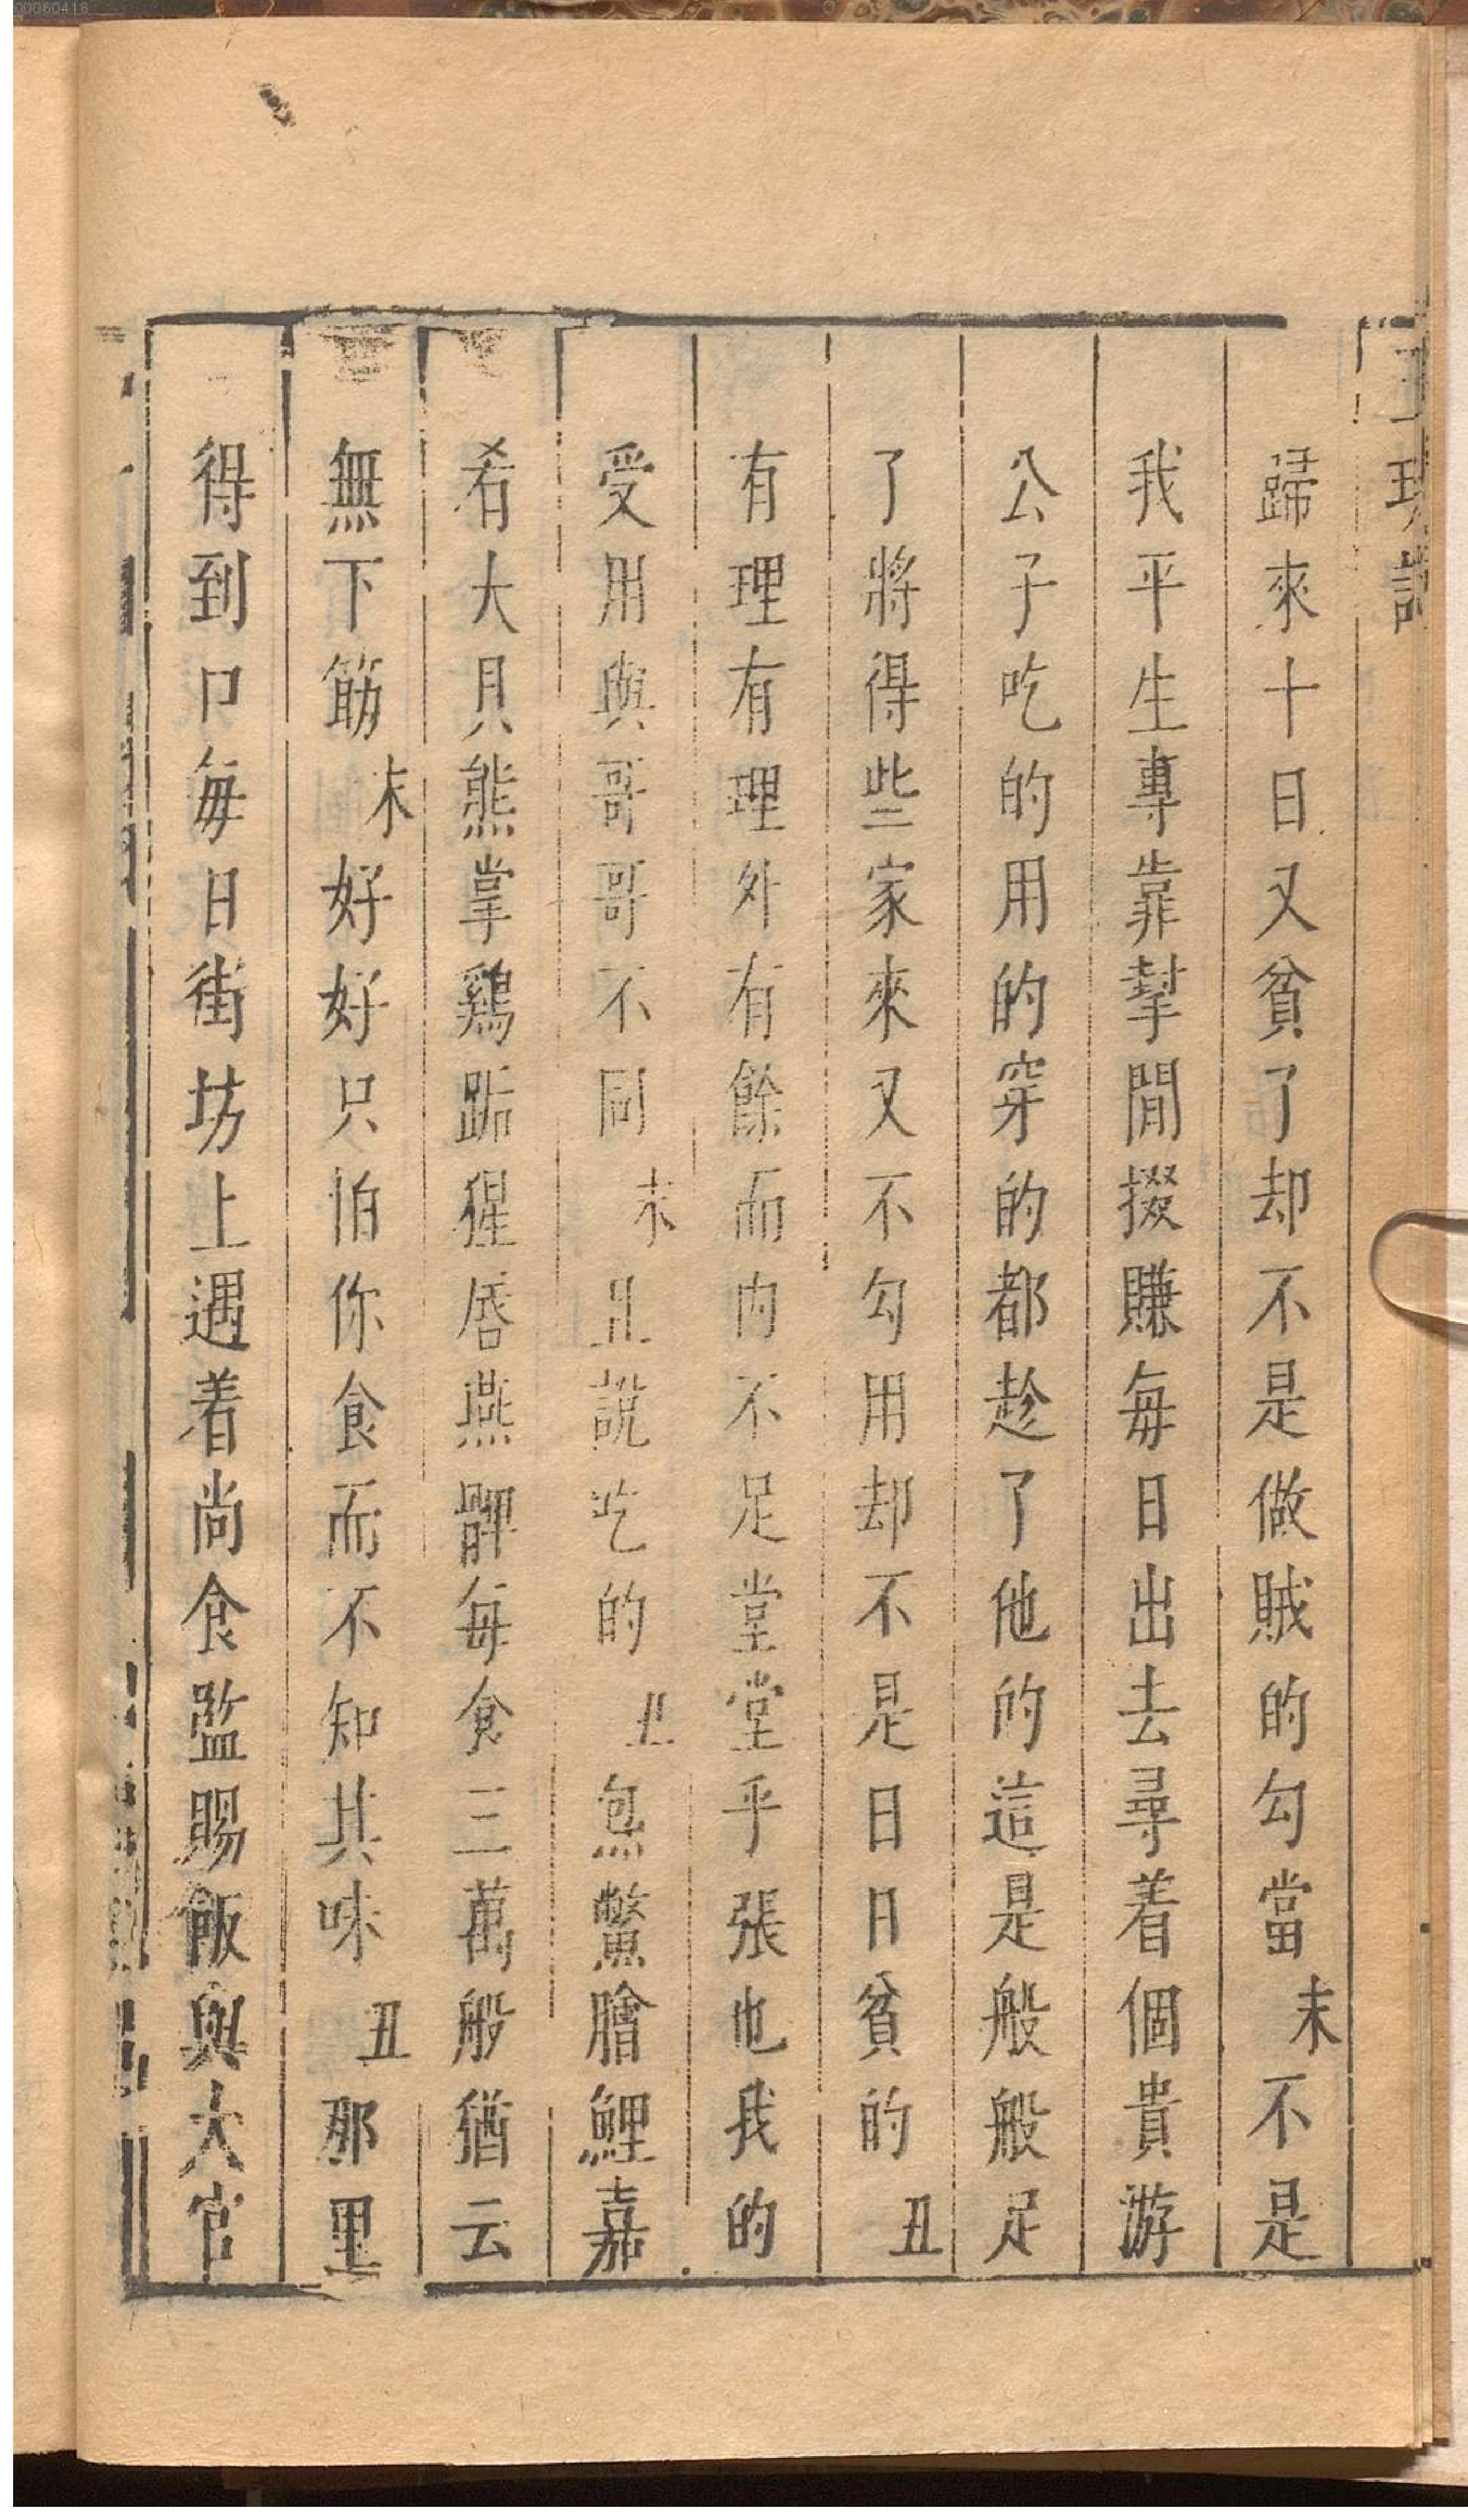 歸來十日又貧了却不是做賊的勾當末不是
我平生專靠幇閒掇賺每日出去尋着個貴游
公子吃的用的穿的都趁了他的這是般般足
了將得些家來又不勾用却不是日日貧的丑
有理有理外有餘而内不足堂堂乎張也我的
受用與哥哥不同末丑說吃的丑炰鱉膾鯉嘉
肴大貝熊掌鷄跖猩唇燕髀每食三萬般猶云
無下筯末好好只怕你食而不知其味丑那里
得到口每日街坊上遇着尚食監賜飯與大官